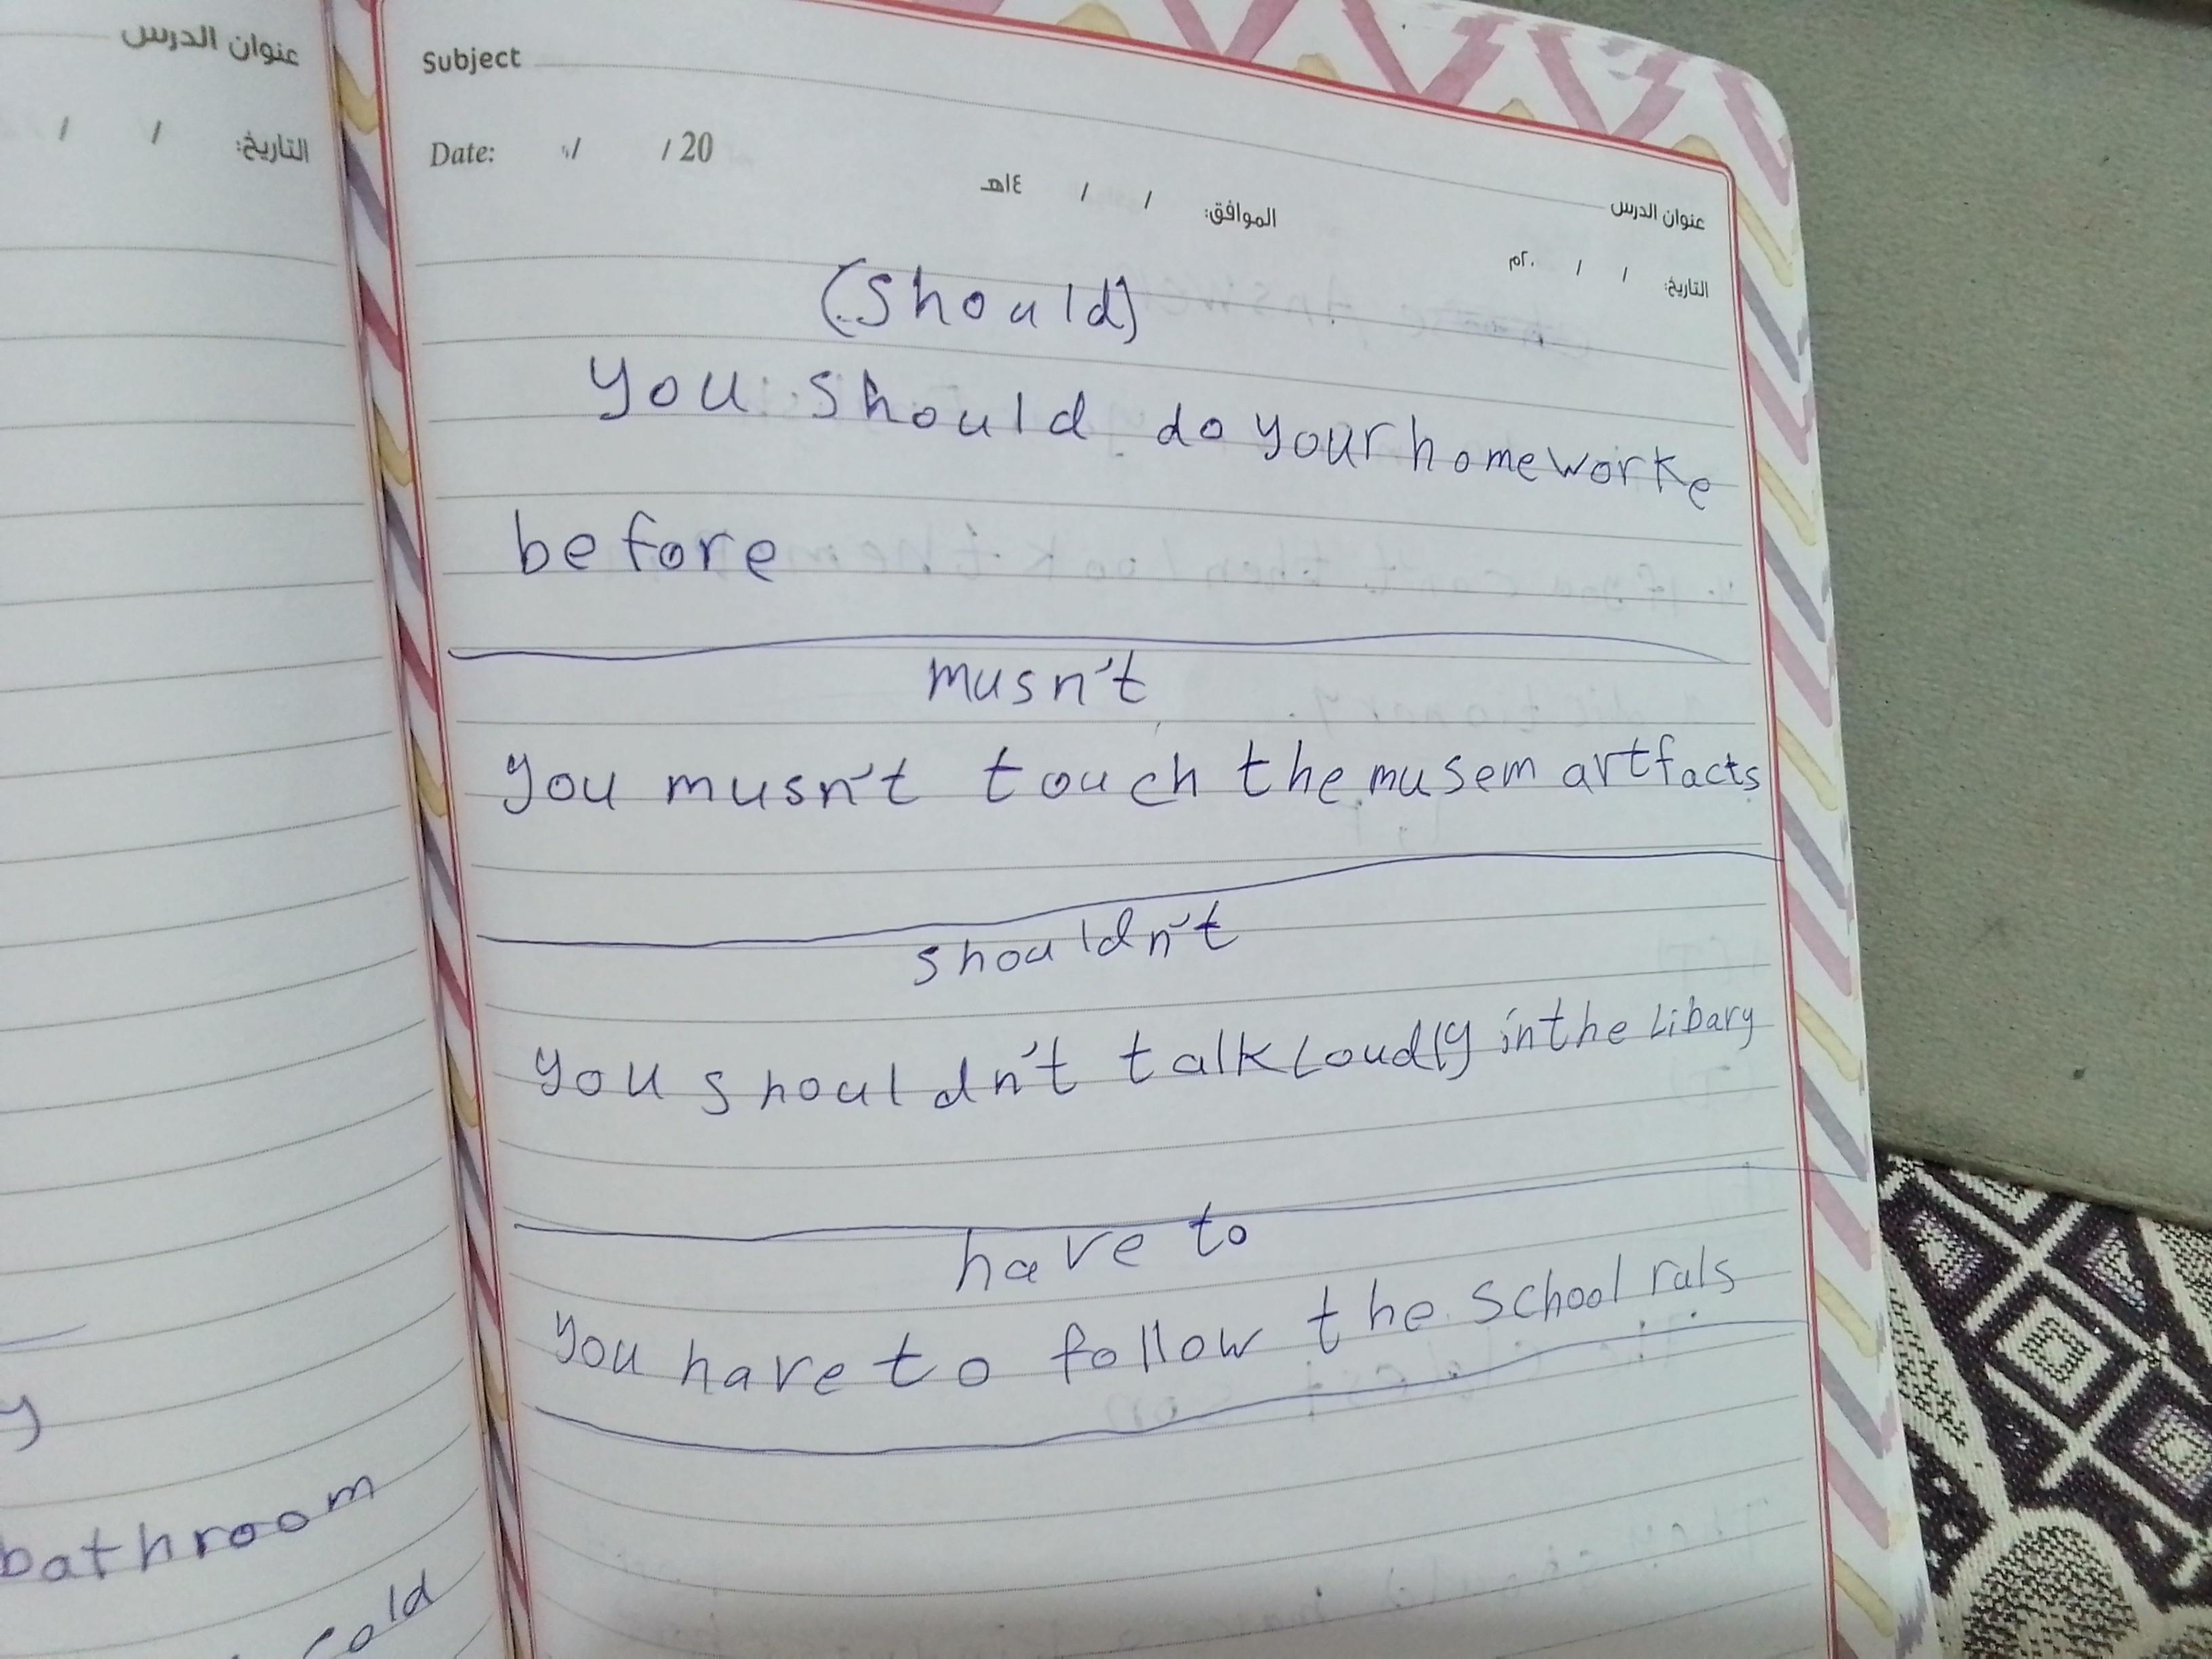 عنوان الدرس
التاريخ: / /
y
bathroom
cold
Subject
Date: / / 20
الموافق: / / ١٤هـ
عنوان الدرس
التاريخ: / / ٢٠م
(should)
you should do your homeworke
before
musn't
you musn't touch the musem artfacts
shouldn't
you shouldn't talk Loudly in the Libary
have to
you have to follow the school ruls